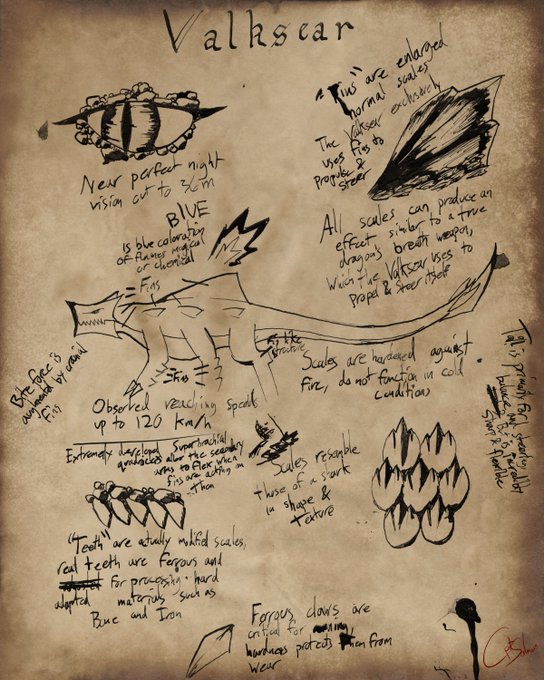 Valksear
"Fins" are enlarged
normal scales
The Valksear exclusively
uses fins to
propulse &
steer
Near perfect night
vision out to 36m
BlUE
Is blue coloration
of flames magical
or chemical
All scales can produce an
effect similar to a true
dragon's breath weapon,
which the Valksear uses to
Propel & Steer itself
Fins
Fin like
structure
Fins
Bite force is
augmented by cranial
fins
Scales are hardened against
fire, do not function in cold
conditions
Tail is primarily for
balance and steering
Strong & flexible
Observed reaching speeds
up to 120 km/h
Extremely developed Superbrachial
quadriceps allow the secondary
arms to flex when
fins are acting on
them
Scales resemble
those of a shark
in shape &
texture
"Teeth" are actually modified scales,
real teeth are ferrous and
adapted for processing hard
materials such as
Bone and Iron
Ferrous claws are
critical for
hardness protects them from
wear